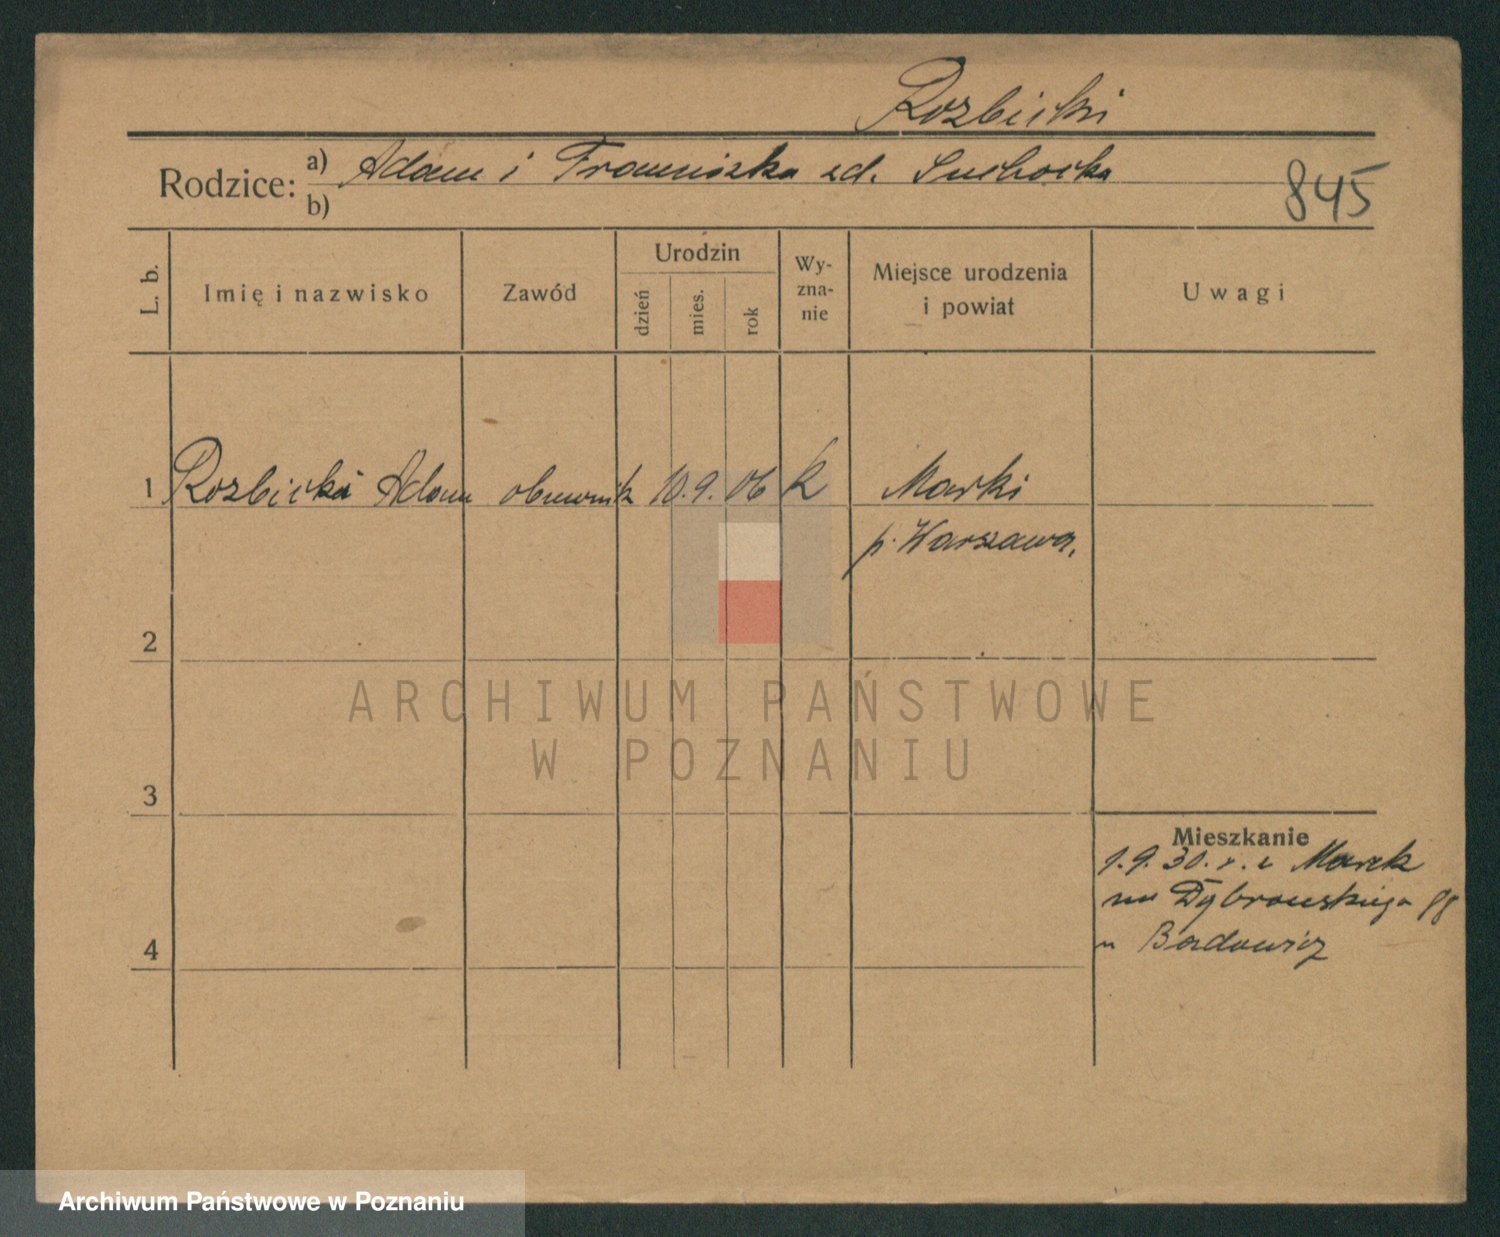 Rozbicki
Rodzice: a) Adam i Franciszka zd. Suchocka
b)
845
L. b.
Imię i nazwisko
Zawód
Urodzin
dzień
mies.
rok
Wy-
zna-
nie
Miejsce urodzenia
i powiat
Uwagi
1 Rozbicki Adam obuwnik 10. 9. 06 k Marki
p. Warszawa.
2
ARCHIWUM PAŃSTWOWE
W POZNANIU
3
Mieszkanie
1.9.30. z Marek
na Dąbrowskiego
u Badowicz
4
Archiwum Państwowe w Poznaniu